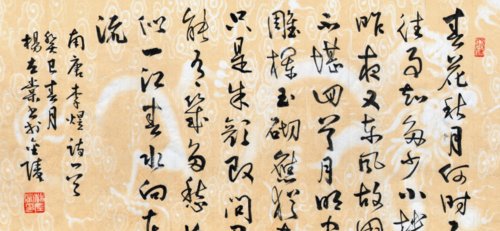 春花秋月何时
往事知多少小楼
昨夜又东风故国
不堪回首月明中
雕栏玉砌应犹
只是朱颜改问
能有几多愁
似一江春水向东
流
南唐李煜诗一首
癸巳春月
杨 书 金陵